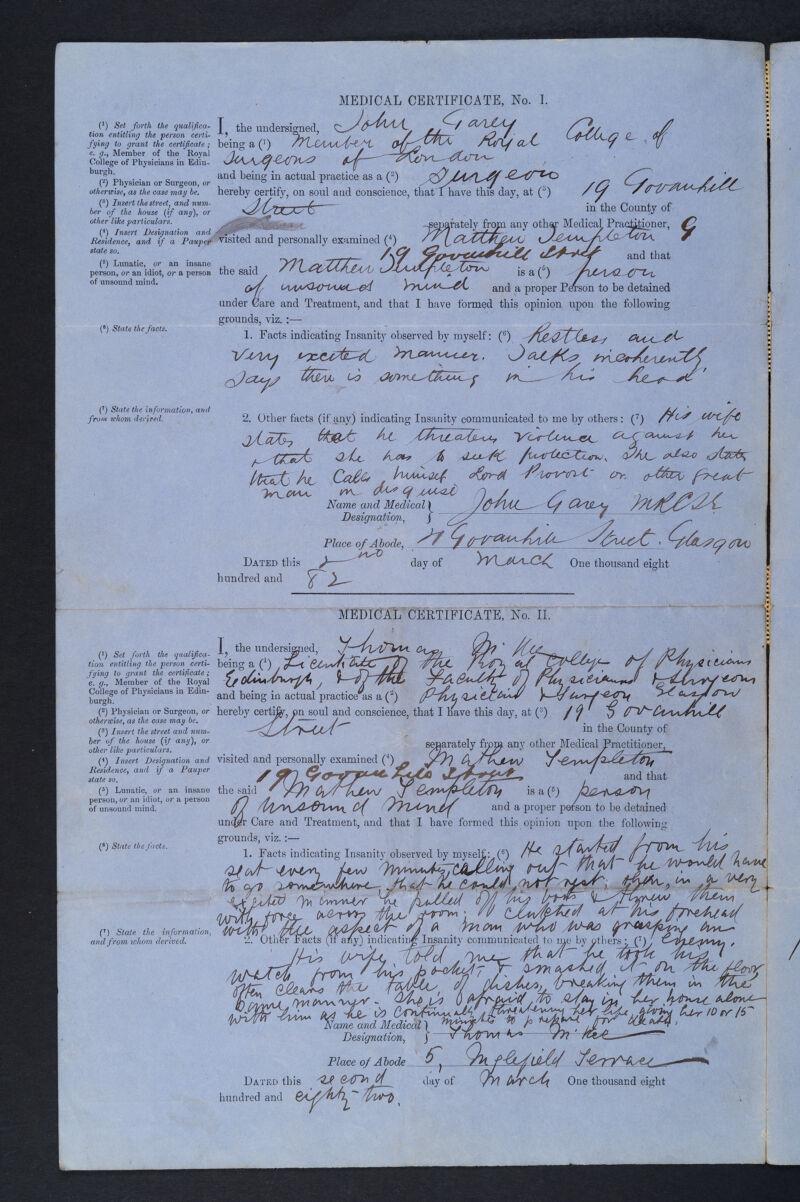 MEDICAL CERTIFICATE, No. I.
(¹) Set forth the qualifica-
tion entitling the person certi-
fying to grant the certificate;
e. g., Member of the Royal
College of Physicians in Edin-
burgh.
(²) Physician or Surgeon, or
otherwise, as the case may be.
(³) Insert the street, and num-
ber of the house (if any), or
other like particulars.
(⁴) Insert Designation and
Residence, and if a Pauper
state so.
(⁵) Lunatic, or an insane
person, or an idiot, or a person
of unsound mind.
(⁶) State the facts.
(⁷) State the information, and
from whom derived.
I, the undersigned, John Garey
being a (¹) Member of the Royal College of
Surgeons of London
and being in actual practice as a (²) Surgeon
hereby certify, on soul and conscience, that I have this day, at (³) 19 Govanhill
Street in the County of
separately from any other Medical Practitioner,
visited and personally examined (⁴) Matthew Templeton
19 Govanhill Street and that
the said Matthew Templeton is a (⁵) person
of unsound mind and a proper Person to be detained
under Care and Treatment, and that I have formed this opinion upon the following
grounds, viz.:—
1. Facts indicating Insanity observed by myself: (⁶) Restless and
very excited manner. Talks incoherently
Says there is something in his head
2. Other facts (if any) indicating Insanity communicated to me by others: (⁷) His wife
states that he threatens violence against her
& that she has to seek protection. She also states
that he calls himself Lord Provost or other great
man in disguise
Name and Medical Designation, John Garey MRCSL
Place of Abode, Govanhill Street, Glasgow
DATED this 2nd day of March One thousand eight
hundred and 82
MEDICAL CERTIFICATE, No. II.
(¹) Set forth the qualifica-
tion entitling the person certi-
fying to grant the certificate;
e. g., Member of the Royal
College of Physicians in Edin-
burgh.
(²) Physician or Surgeon, or
otherwise, as the case may be.
(³) Insert the street and num-
ber of the house (if any), or
other like particulars.
(⁴) Insert Designation and
Residence, and if a Pauper
state so.
(⁵) Lunatic, or an insane
person, or an idiot, or a person
of unsound mind.
(⁶) State the facts.
(⁷) State the information,
and from whom derived.
I, the undersigned, Thomas McKee
being a (¹) Licentiate of the Royal College of Physicians
Edinburgh, & of the Faculty of Physicians & Surgeons
and being in actual practice as a (²) Physician & Surgeon Glasgow
hereby certify, on soul and conscience, that I have this day, at (³) 19 Govanhill
Street in the County of
separately from any other Medical Practitioner,
visited and personally examined (⁴) Mathew Templeton
19 Govanhill Street and that
the said Mathew Templeton is a (⁵) person
of unsound mind and a proper person to be detained
under Care and Treatment, and that I have formed this opinion upon the following
grounds, viz.:—
1. Facts indicating Insanity observed by myself: (⁶) He started from his
seat every few minutes, calling out that he would have
to go somewhere, that he could not rest, often, in a very
excited manner he pulled off his boots & threw them
with force across the room; clutched at his forehead
with the aspect of a man who was grasping an
enemy.
2. Other Facts (if any) indicating Insanity communicated to me by others: (⁷)
His wife told me that he took his
watch from his pocket & smashed it on the floor
often clears the table of dishes, breaking them in the
same manner. She is afraid to stay in her house alone
with him as he is continually threatening her life, giving her 10 or 15
minutes to prepare for death.
Name and Medical Designation, Thomas McKee
Place of Abode 5, Inglefield Terrace
DATED this second day of March One thousand eight
hundred and eighty two.